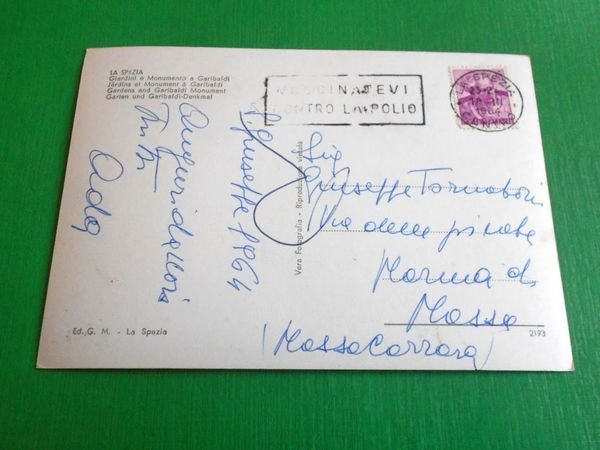 LA SPEZIA
Giardini e Monumento a Garibaldi
Jardins et Monument à Garibaldi
Gardens and Garibaldi Monument
Garten und Garibaldi-Denkmal
VACCINATEVI
CONTRO LA POLIO
LA SPEZIA
18 III
1964
S. Giuseppe 1964
Auguri da noi
tutti
Ada
Vera Fotografia - Riproduzione vietata
Sig
Giuseppe Tornaboni
Via delle pinete
Marina di
Massa
(Massa Carrara)
Ed. G. M. - La Spezia
2193